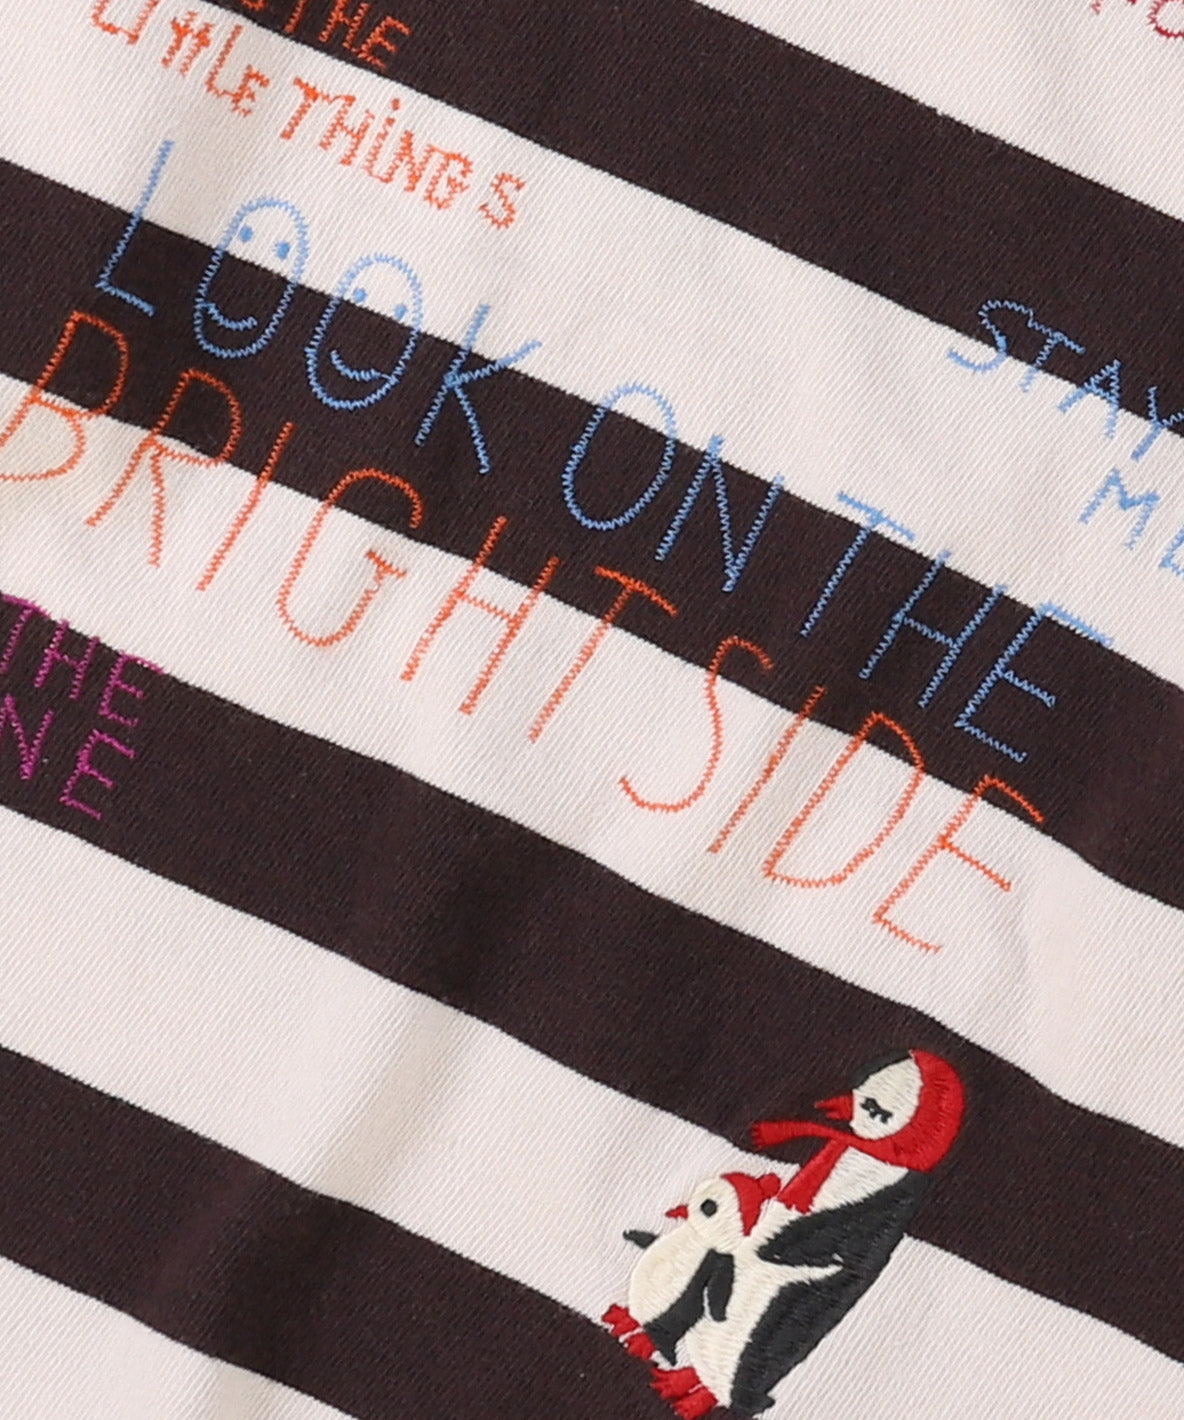 THE
LITTLE THINGS
LOOK ON THE
BRIGHT SIDE
STAY
THE